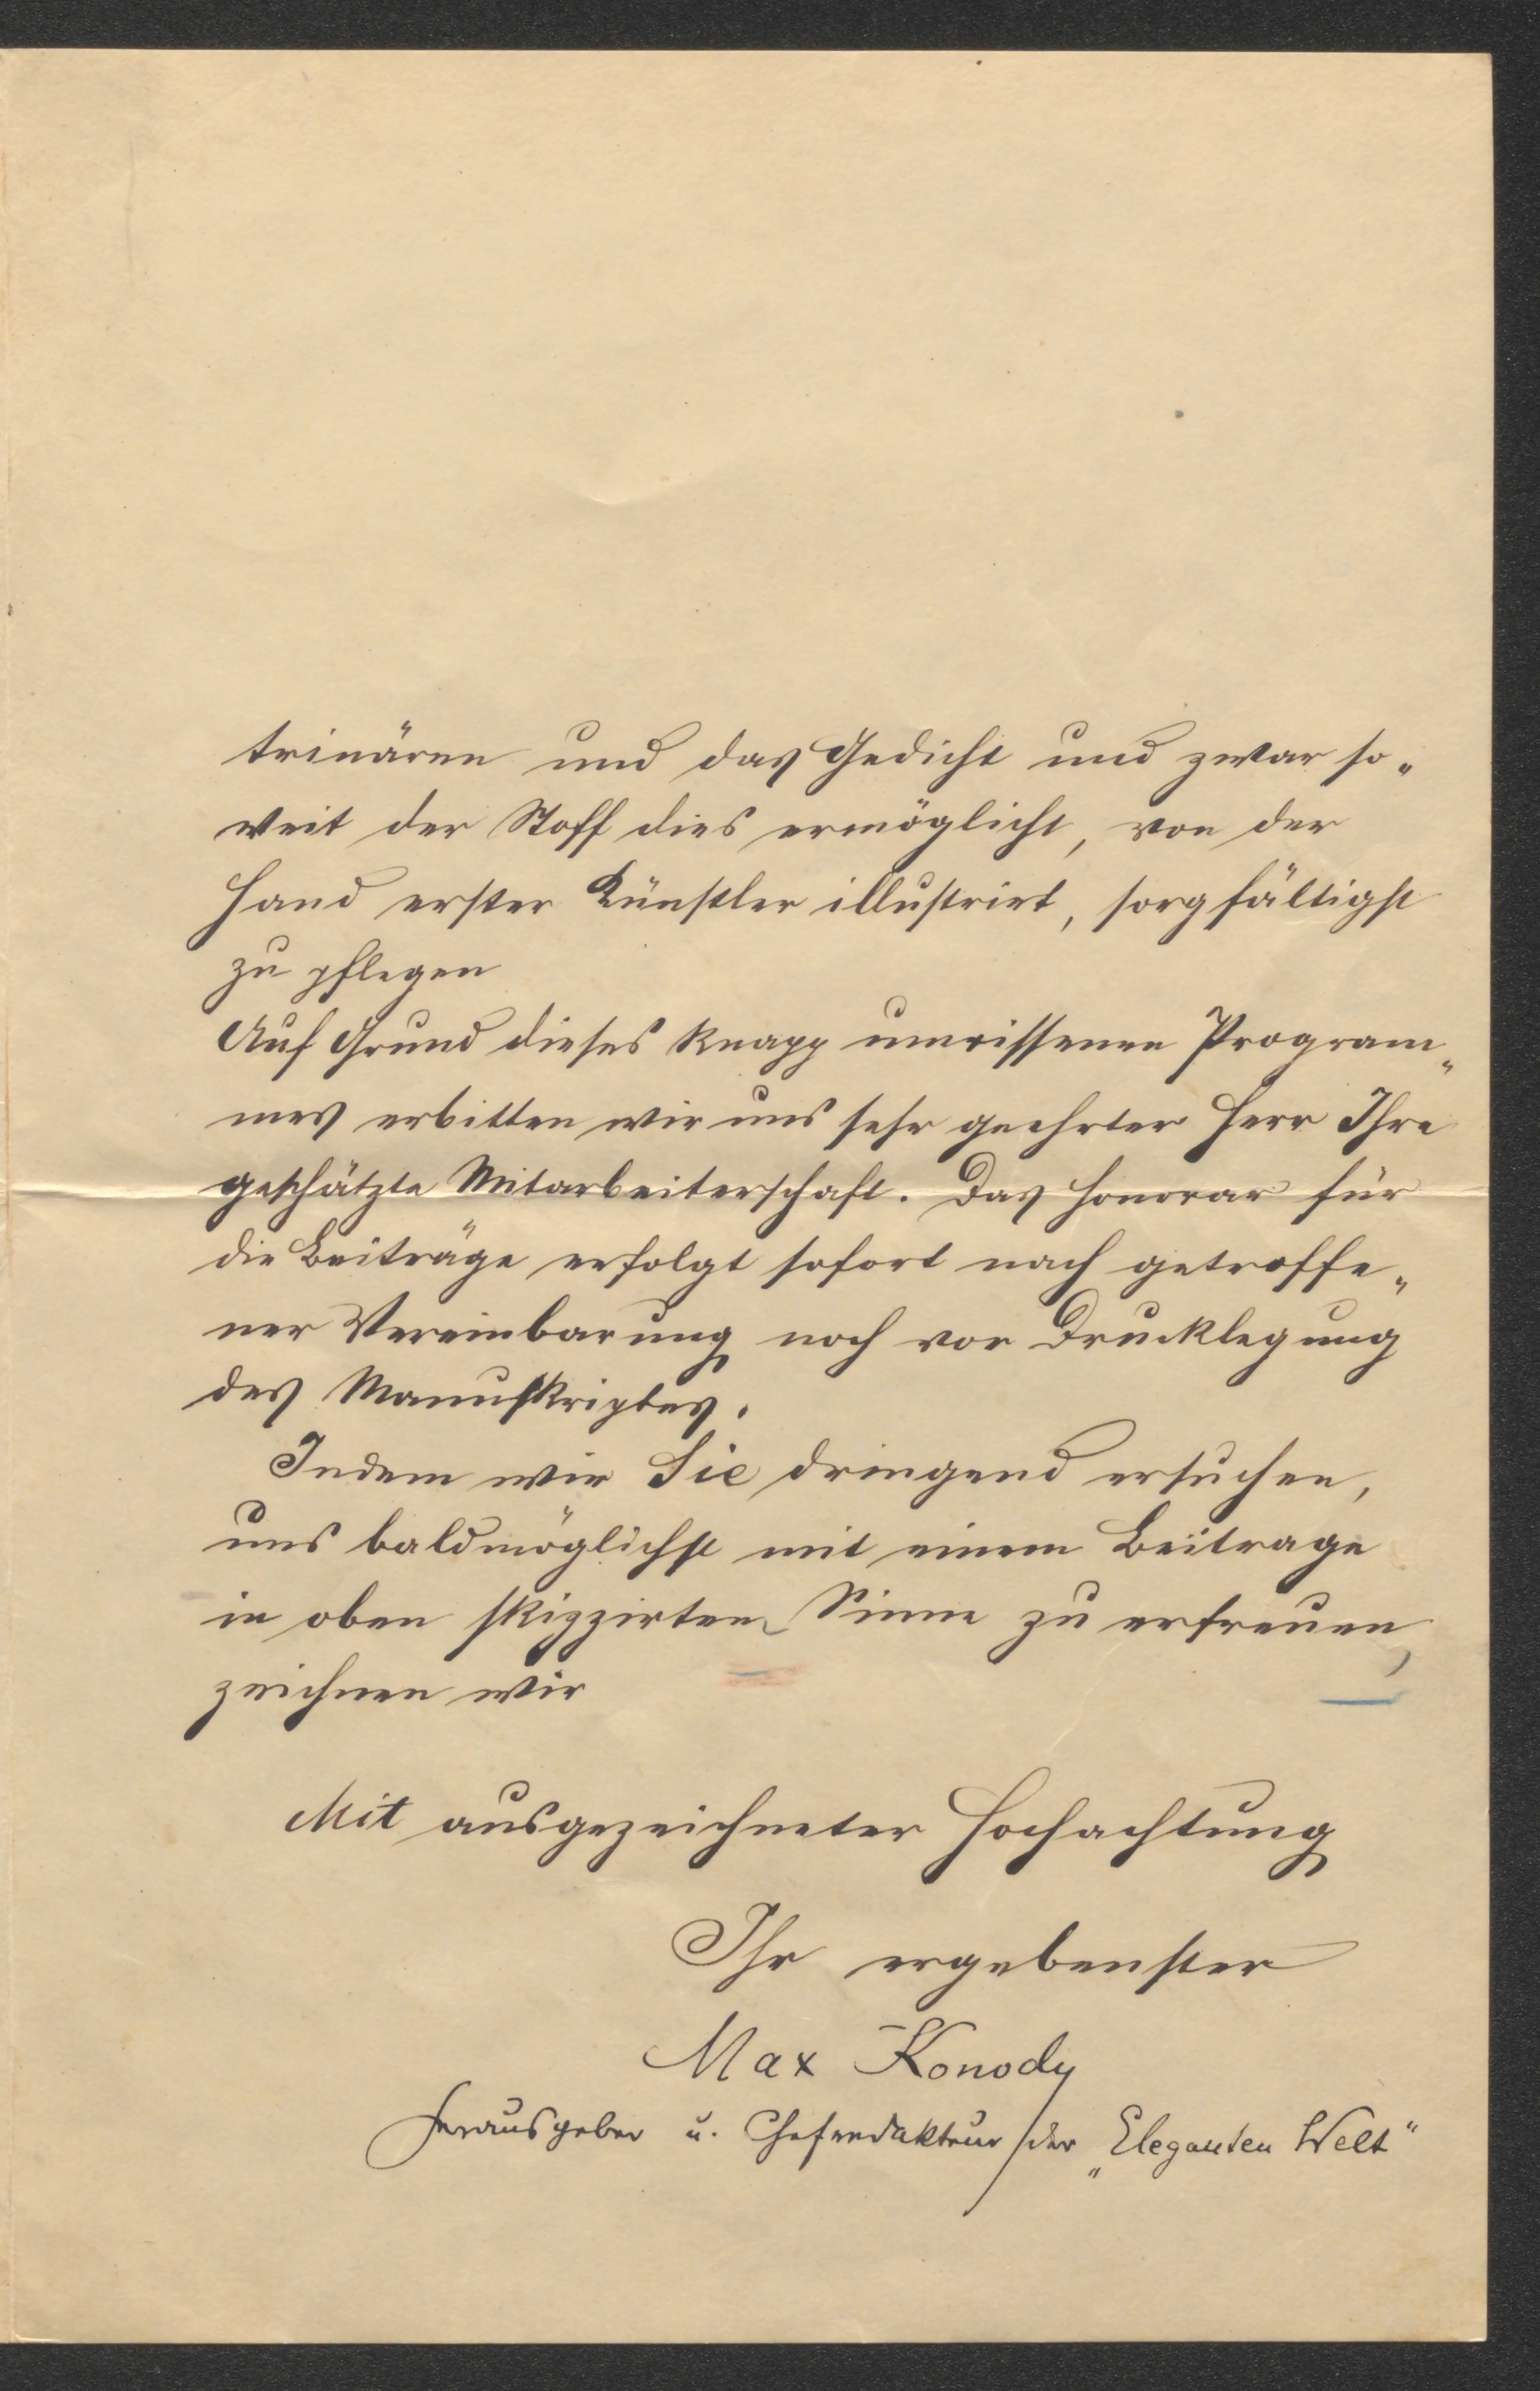 trinären und das Gedicht und zwar so-
weit der Stoff dies ermöglicht, von der
Hand erster Künstler illustrirt, sorgfältigst
zu pflegen
Auf Grund dieses knapp umrissenen Program-
mes erbitten wir uns sehr geehrter Herr Ihre
geschätzte Mitarbeiterschaft. Das Honorar für
die Beiträge erfolgt sofort nach getroffe-
ner Vereinbarung noch vor Drucklegung
des Manuskriptes.
Indem wir Sie dringend ersuchen,
uns baldmöglichst mit einem Beitrage
in oben skizzirten Sinne zu erfreuen,
zeichnen wir
Mit ausgezeichneter Hochachtung
Ihr ergebenster
Max Konody
Herausgeber u. Chefredakteur der „Eleganten Welt"